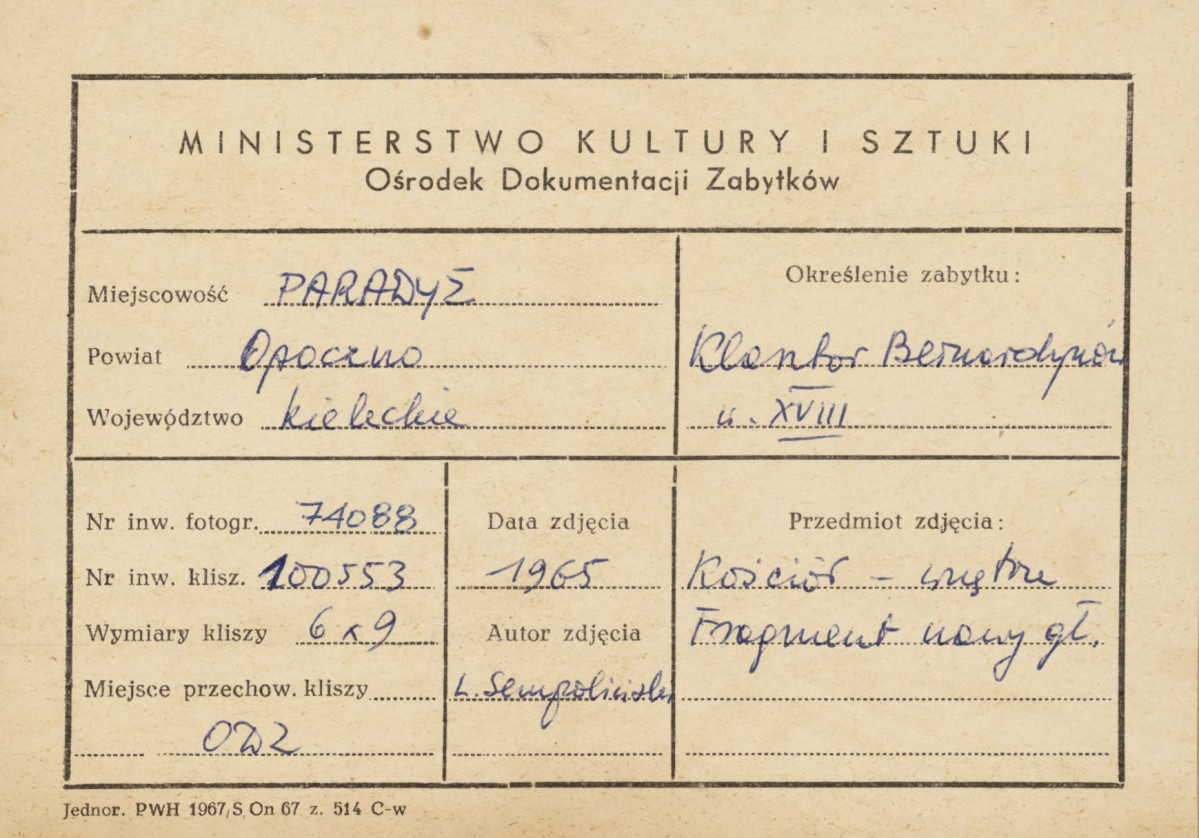 MINISTERSTWO KULTURY I SZTUKI
Ośrodek Dokumentacji Zabytków
Miejscowość PARADYŻ
Powiat Opoczno
Województwo kieleckie
Określenie zabytku:
Klasztor Bernardynów
w. XVIII
Nr inw. fotogr. 74088
Nr inw. klisz. 100553
Wymiary kliszy 6 x 9
Miejsce przechow. kliszy
ODZ
Data zdjęcia
1965
Autor zdjęcia
L. Sempoliński
Przedmiot zdjęcia:
Kościół – wnętrze
Fragment nawy gł.
Jednor. PWH 1967/S On 67 z. 514 C-w